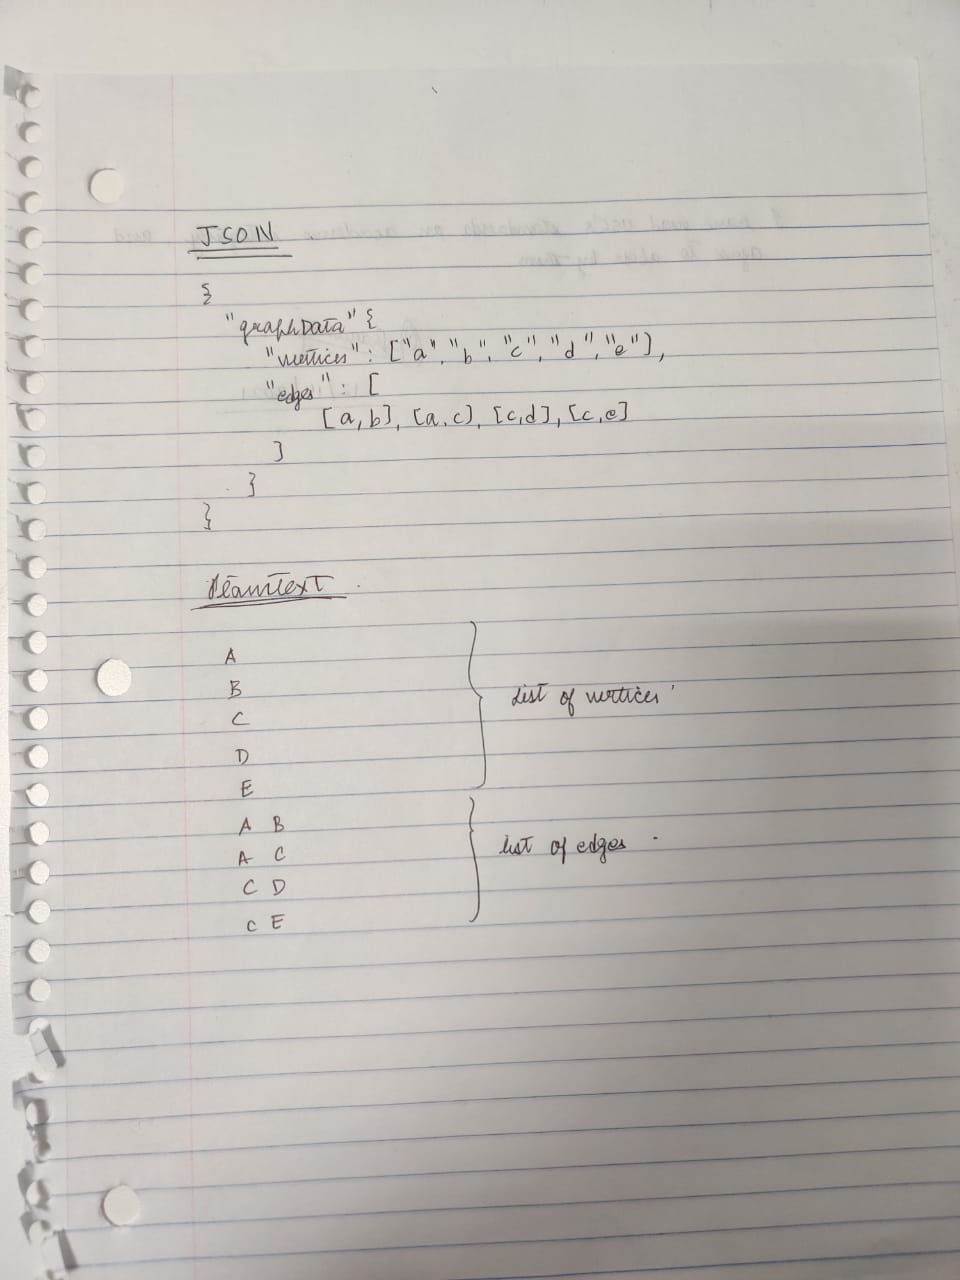 JSON
{
"graphData" {
"vertices" : ["a", "b", "c", "d", "e"],
"edges" : [
[a,b], [a,c], [c,d], [c,e]
]
}
}
PlainText
A
B
C
D
E
list of vertices
A B
A C
C D
C E
list of edges